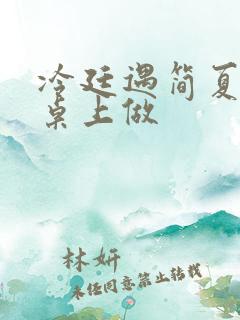 冷廷遇简夏
桌上做
林妍
未经同意禁止转载